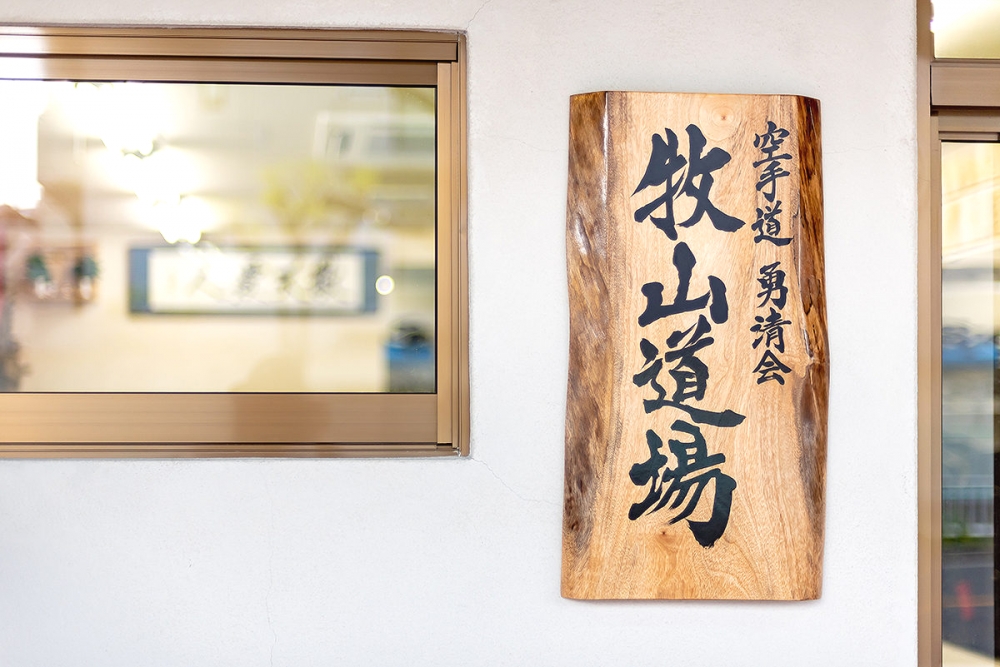 空手道 勇清会
牧山道場